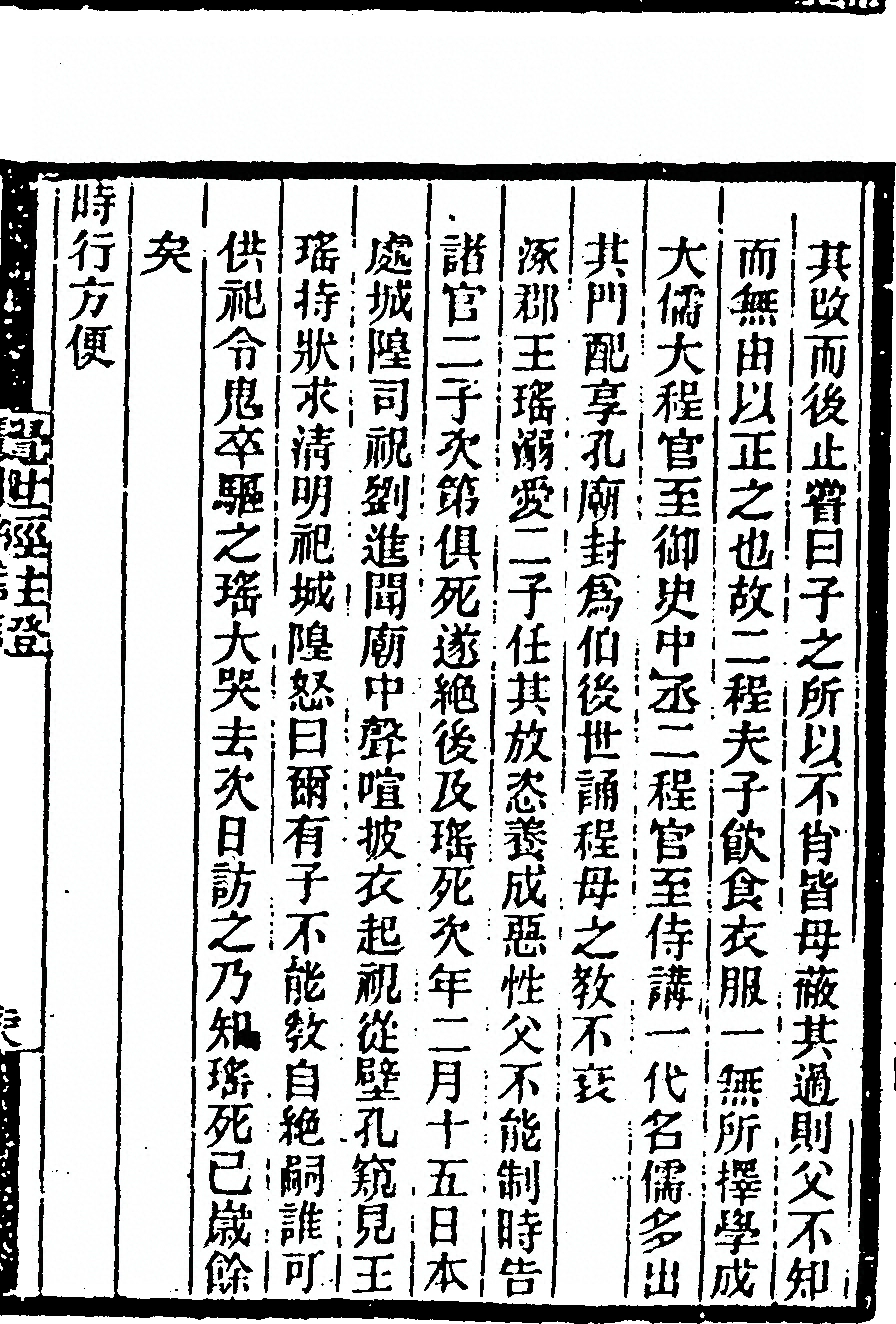 其改而後止嘗曰子之所以不肖皆母蔽其過則父不知
而無由以正之也故二程夫子飲食衣服一無所擇學成
大儒大程官至御史中丞二程官至侍講一代名儒多出
其門配享孔廟封爲伯後世誦程母之教不衰
涿郡王瑤溺愛二子任其放恣養成惡性父不能制時告
諸官二子次第俱死遂絶後及瑤死次年二月十五日本
處城隍司祝劉進聞廟中聲喧披衣起視從壁孔窺見王
瑤持狀求清明祀城隍怒曰爾有子不能教自絶嗣誰可
供祀令鬼卒驅之瑤大哭去次日訪之乃知瑤死已歲餘
矣
時行方便
覺世經註證